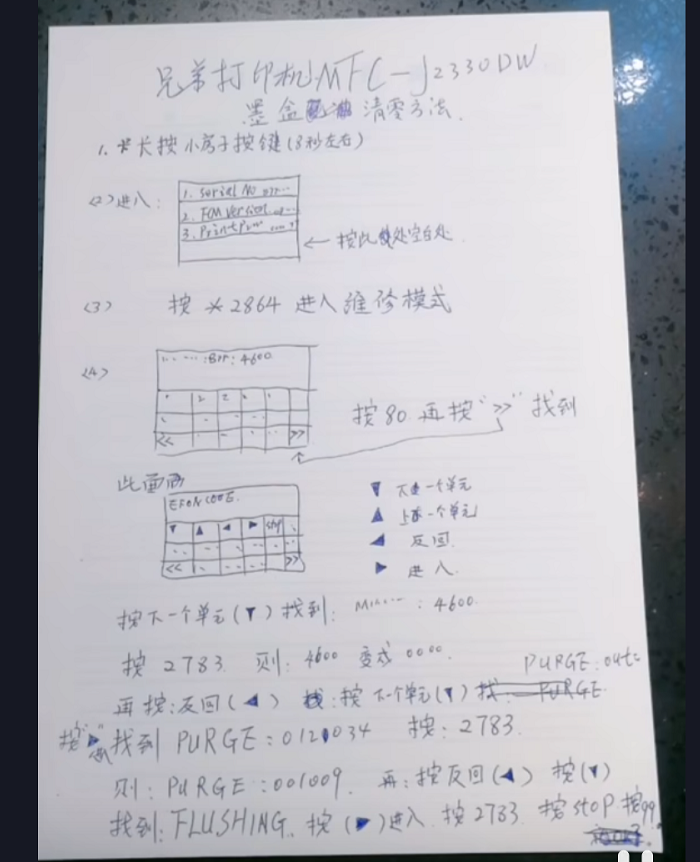 兄弟打印机MFC-J2330DW
墨盒 清零方法.
1. 长按小房子按键(3秒左右)
<2>进入:
1. Serial No
2. FCM Version
3. Print
← 按此处空白处
<3> 按 *2864 进入维修模式
<4>
Err: 4600
<< >>
按80 再按“>>”找到
此画面
▼ 一个单元
▲ 一个单元
◀ 反回
▶ 进入.
▼ ▲ ◀ ▶ stop
<< >>
按下一个单元(▼)找到: : 4600.
按 2783. 则: 4600 变成 0000.
PURGE:
再按:反回(◀) 按下一个单元(▼)
按“▶”找到 PURGE: 按: 2783.
则: PURGE: 001009. 再:按反回(◀) 按(▼)
找到: FLUSHING. 按(▶)进入. 按2783. 按stop. 按99